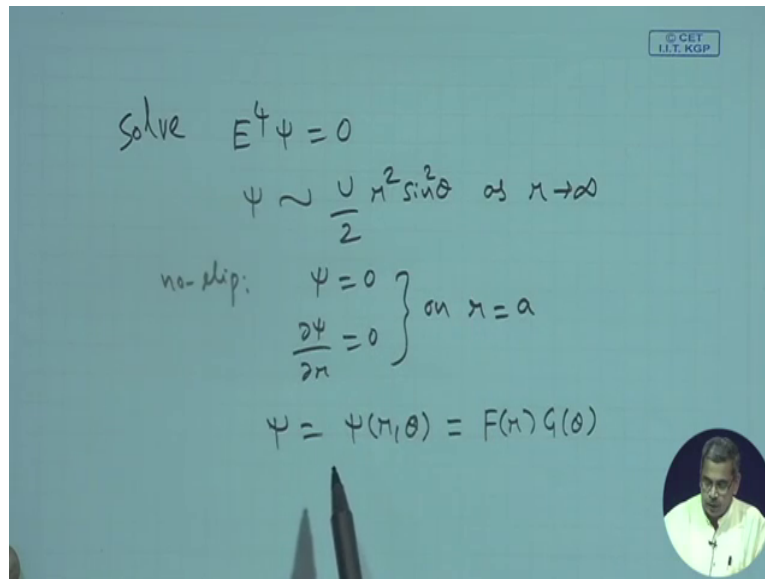 © CET
I.I.T. KGP
Solve E⁴ψ = 0
ψ ~ U/2 r² sin²θ as r→∞
no-slip: ψ = 0
∂ψ/∂r = 0 } on r = a
ψ = ψ(r,θ) = F(r) G(θ)